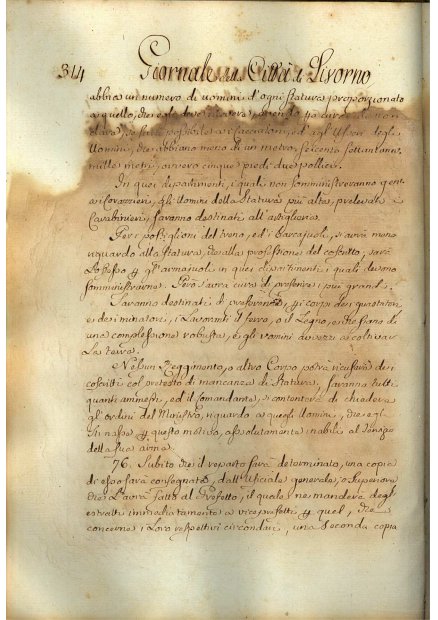 314 Giornale della Città di Livorno
abbia un numero di uomini d'ogni statura proporzionato
a quello, che
se sarà possibile ai Cacciatori, ed agli Usseri degli
Uomini, che abbiano meno di un metro, seicento settantanove
mille metri, ovvero cinque piedi due pollici.
In quei dipartimenti, i quali non somministreranno gente
ai Corazzieri, gli Uomini della Statura più alta, prelevati i
Carabinieri, saranno destinati all'artiglieria.
Per i postiglioni del treno, ed i Barcajuoli, si avrà meno
riguardo alla Statura, che alla professione del coscritto, sarà
lo stesso per gli armajuoli in quei dipartimenti i quali devono
somministrarne. Però s'avrà cura di preferire i più grandi.
Saranno destinati di preferenza, per i corpi dei guastatori,
e dei minatori, i Lavoranti il ferro, o il Legno, e che siano di
una complessione robusta, e gli uomini avvezzi a coltivar
La terra.
Nessun Reggimento, o altro Corpo potrà ricusare dei
coscritti col pretesto di mancanza di Statura, saranno tutti
quanti ammessi, ed il Comandante, si contenterà di chiedere
gl'ordini del Ministro, riguardo a quegli Uomini, che egli
stimasse per questo motivo, assolutamente inabili al servizio
della sua arma.
76. Subito che il reparto sarà determinato, una copia
di esso sarà consegnata, dall'Ufficiale generale, o Superiore
che L'avrà fatto al Prefetto, il quale ne manderà degli
estratti immediatamente ai viceprefetti per quel, che
concerne i Loro respettivi circondari, una Seconda copia